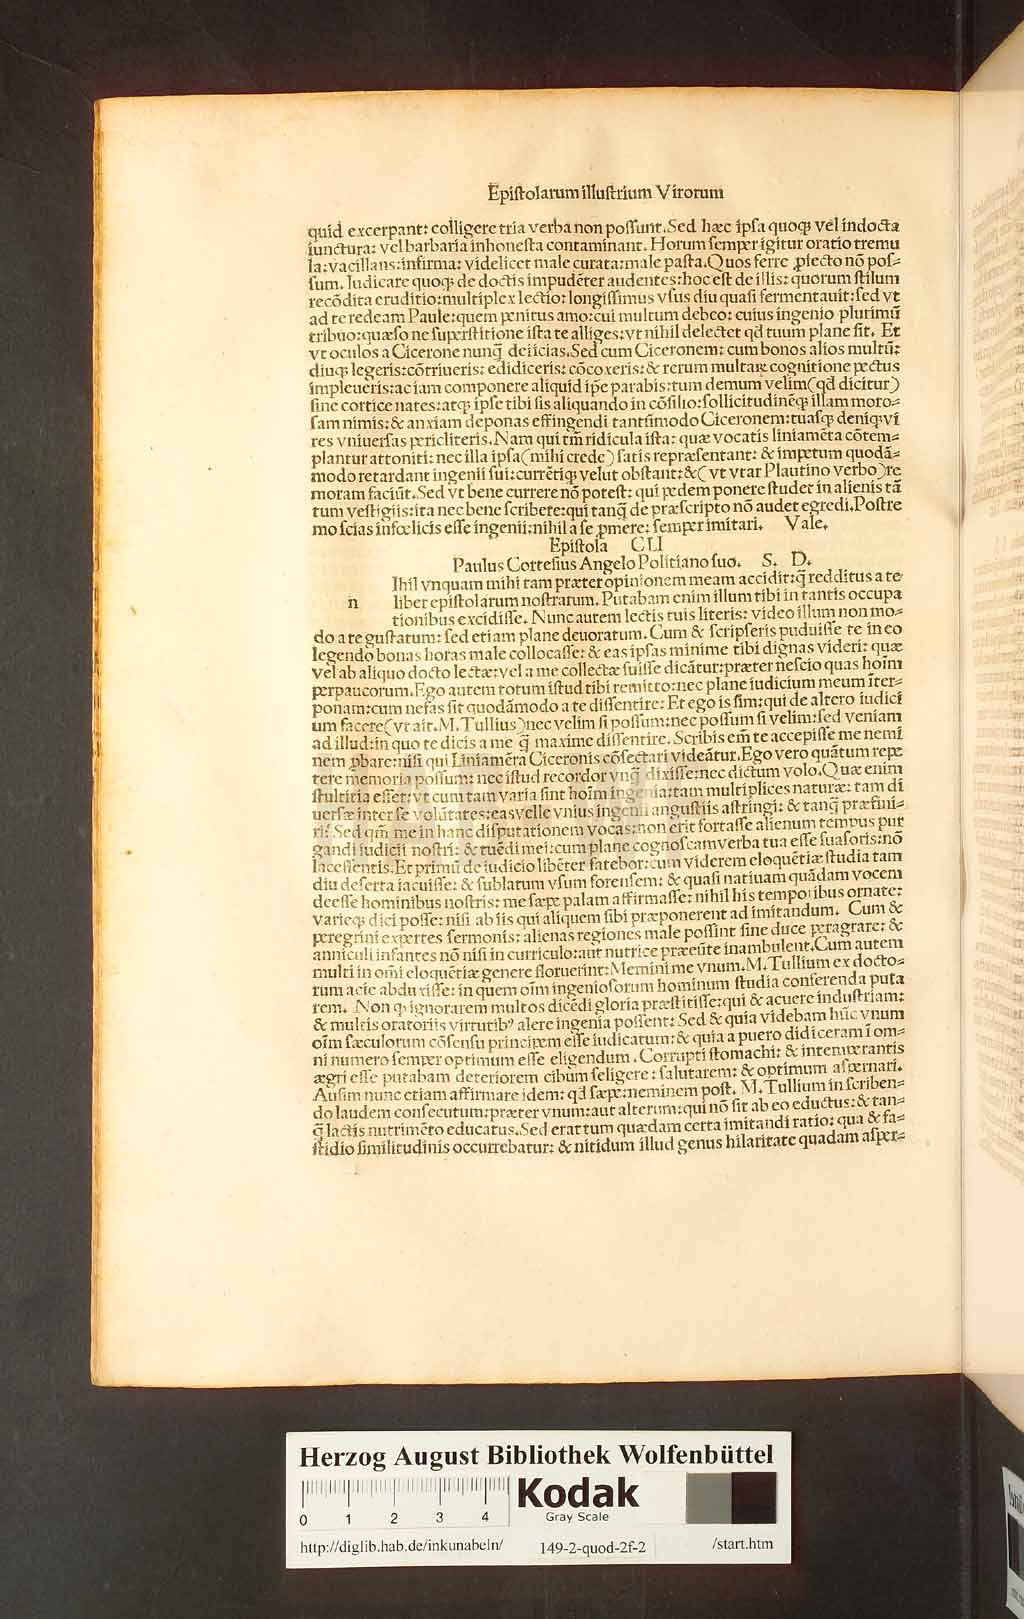 Epiſtolarum illuſtrium Virorum
quid excerpant: colligere tria verba non poſſunt. Sed hæc ipſa quoq; vel indocta
iunctura: vel barbaria inhoneſta contaminant. Horum ſemper igitur oratio tremu
la: vacillans: infirma: videlicet male curata: male paſta. Quos ferre ꝓfecto nõ poſ⸗
ſum. Iudicare quoq; de doctis impudẽter audentes: hoc eſt de illis: quorum ſtilum
recõdita eruditio: multiplex lectio: longiſſimus vſus diu quaſi fermentauit: ſed vt
ad te redeam Paule: quem penitus amo: cui multum debeo: cuius ingenio plurimũ
tribuo: quæſo ne ſuperſtitione iſta te alliges: vt nihil delectet qd tuum plane ſit. Et
vt oculos a Cicerone nunq̃ deiicias. Sed cum Ciceronem: cum bonos alios multũ:
diuq; legeris: cõtriueris: edidiceris: cõcoxeris: & rerum multaꝝ cognitione pectus
impleueris: ac iam componere aliquid ip̃e parabis: tum demum velim (qd dicitur)
ſine cortice nates: atq; ipſe tibi ſis aliquando in cõſilio: ſollicitudinẽq; illam moro⸗
ſam nimis: & anxiam deponas effingendi tantũmodo Ciceronem: tuaſq; deniq; vi
res vniuerſas pericliteris. Nam qui tm̃ ridicula iſta: quæ vocatis liniamẽta cõtem⸗
plantur attoniti: nec illa ipſa (mihi crede) ſatis repræſentant: & impetum quodã⸗
modo retardant ingenii ſui: currẽtiq; velut obſtant: & (vt vtar Plautino verbo) re
moram faciũt. Sed vt bene currere nõ poteſt: qui pedem ponere ſtudet in alienis tã
tum veſtigiis: ita nec bene ſcribere: qui tanq̃ de præſcripto nõ audet egredi. Poſtre
mo ſcias infœlicis eſſe ingenii: nihil a ſe ꝓmere: ſemper imitari. Vale.
Epiſtola CLI
Paulus Corteſius Angelo Politiano ſuo. S. D.
n Ihil vnquam mihi tam præter opinionem meam accidit: q̃ redditus a te
liber epiſtolarum noſtrarum. Putabam enim illum tibi in tantis occupa
tionibus excidiſſe. Nunc autem lectis tuis literis: video illum non mo⸗
do a te guſtatum: ſed etiam plane deuoratum. Cum & ſcripſeris puduiſſe te in eo
legendo bonas horas male collocaſſe: & eas ipſas minime tibi dignas videri: quæ
vel ab aliquo docto lectæ: vel a me collectæ fuiſſe dicãtur: præter neſcio quas hoĩm
perpaucorum. Ego autem totum iſtud tibi remitto: nec plane iudicium meum ĩter⸗
ponam: cum nefas ſit quodãmodo a te diſſentire: Et ego is ſim: qui de altero iudici
um facere (vt ait. M. Tullius) nec velim ſi poſſum: nec poſſum ſi velim: ſed veniam
ad illud: in quo te dicis a me q̃ maxime diſſentire. Scribis em̃ te accepiſſe me nemi
nem ꝓbare: niſi qui Liniamẽta Ciceronis cõſectari videãtur. Ego vero quãtum repe
tere memoria poſſum: nec iſtud recordor vnq̃ dixiſſe: nec dictum volo. Quæ enim
ſtultitia eſſet: vt cum tam varia ſint hoĩm ingenia: tam multiplices naturæ: tam di
uerſæ inter ſe volũtates: eas velle vnius ingenii anguſtiis aſtringi: & tanq̃ præfini⸗
ri: Sed qm̃ me in hanc diſputationem vocas: non erit fortaſſe alienum tempus pur
gandi iudicii noſtri: & tuẽdi mei: cum plane cognoſcam verba tua eſſe ſuaſoris: nõ
laceſſentis. Et primũ de iudicio libẽter fatebor: cum viderem eloquẽtiæ ſtudia tam
diu deſerta iacuiſſe: & ſublatum vſum forenſem: & quaſi natiuam quãdam vocem
deeſſe hominibus noſtris: me ſæpe palam affirmaſſe: nihil his temporibus ornate:
varieq; dici poſſe: niſi ab iis qui aliquem ſibi præponerent ad imitandum. Cum &
peregrini expertes ſermonis: alienas regiones male poſſint ſine duce peragrare: &
anniculi infantes nõ niſi in curriculo: aut nutrice præeũte inambulent. Cum autem
multi in om̃i eloquẽtiæ genere floruerint: Memini me vnum. M. Tullium ex docto⸗
rum acie abduxiſſe: in quem oĩm ingenioſorum hominum ſtudia conferenda puta
rem. Non q; ignorarem multos dicẽdi gloria præſtitiſſe: qui & acuere induſtriam:
& multis oratoriis virtutibꝰ alere ingenia poſſent: Sed & quia videbam hũc vnum
oĩm ſæculorum cõſenſu principem eſſe iudicatum: & quia a puero didiceram ĩ om⸗
ni numero ſemper optimum eſſe eligendum. Corrupti ſtomachi: & intemperantis
ægri eſſe putabam deteriorem cibum ſeligere: ſalutarem: & optimum aſpernari.
Auſim nunc etiam affirmare idem: qd ſæpe: neminem poſt. M. Tullium in ſcriben⸗
do laudem conſecutum: præter vnum: aut alterum: qui nõ ſit ab eo eductus: & tan⸗
q̃ lactis nutrimẽto educatus. Sed erat tum quædam certa imitandi ratio: qua & fa⸗
ſtidio ſimilitudinis occurrebatur: & nitidum illud genus hilaritate quadam aſper⸗
Herzog August Bibliothek Wolfenbüttel
0 1 2 3 4
Kodak
Gray Scale
http://diglib.hab.de/inkunabeln/ 149-2-quod-2f-2 /start.htm